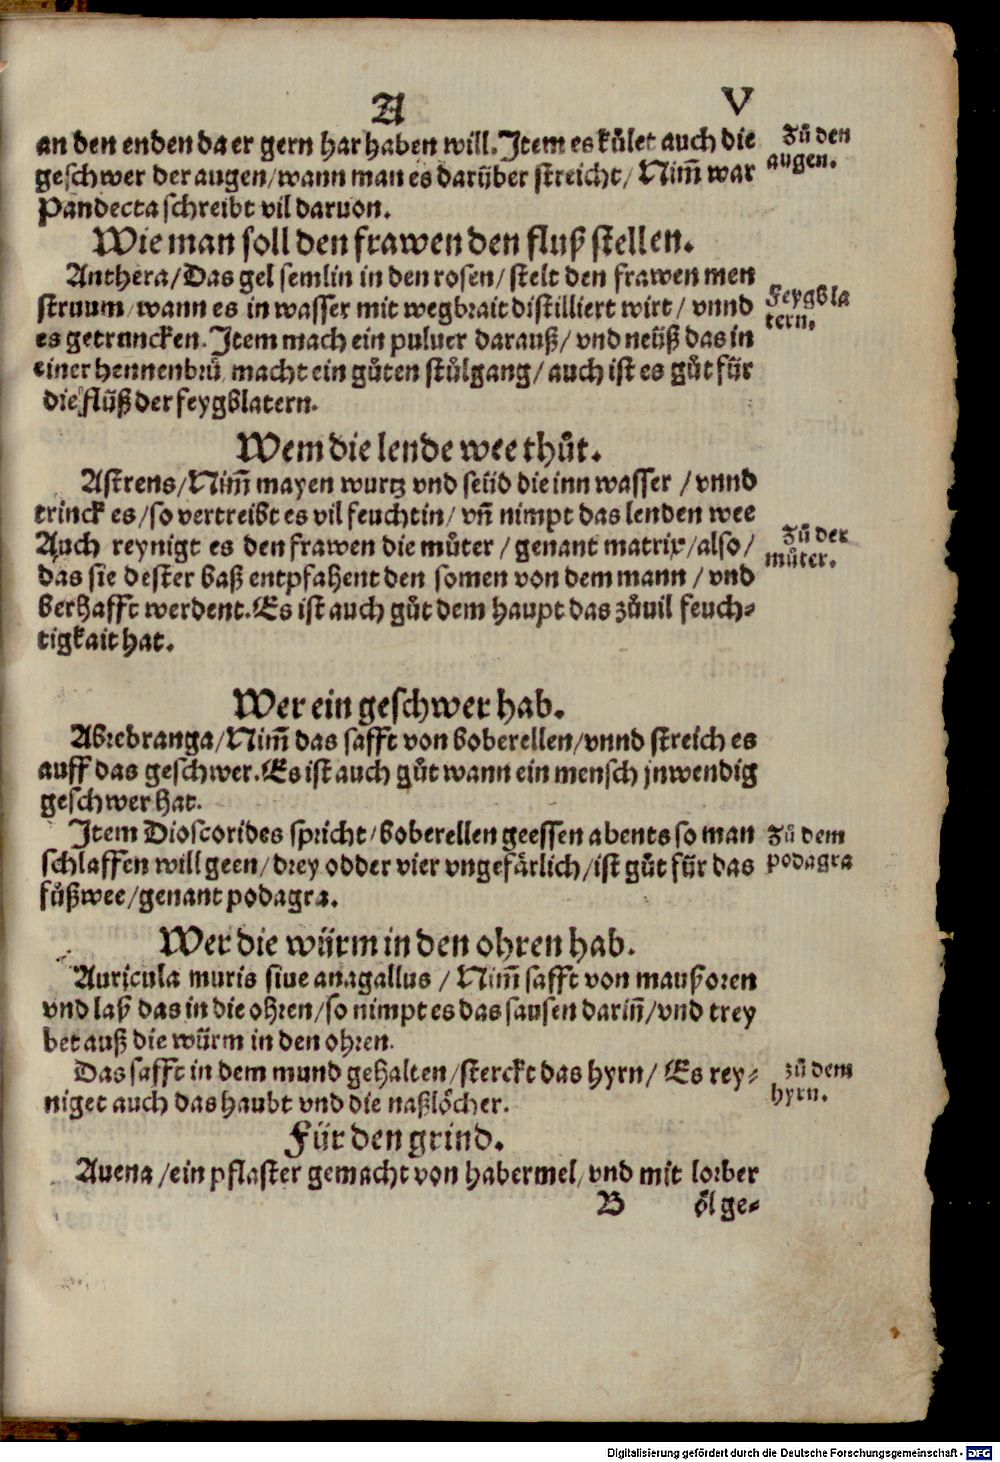 A V
an den enden da er gern har haben will. Item es kůlet auch die
Zů den
geschwer der augen/wann man es darüber streicht/ Nim̃ war
augen.
Pandecta schreibt vil daruon.
Wie man soll den frawen den fluß stellen.
Anthera/Das gel semlin in den rosen/ stelt den frawen men
struum/wann es in wasser mit wegbrait distilliert wirt/ vnnd
Feygbla
tern.
es getruncken. Item mach ein puluer darauß/ vnd neüß das in
einer hennenbrů/ macht ein gůten stůlgang/ auch ist es gůt für
die flüß der feygblatern.
Wem die lende wee thůt.
Astrens/Nim̃ mayen wurtz vnd seüd die inn wasser / vnnd
trinck es/so vertreibt es vil feuchtin/ vñ nimpt das lenden wee
Auch reynigt es den frawen die můter / genant matrix/also/
Zů der
můter.
das sie dester baß entpfahent den somen von dem mann / vnd
berhafft werdent. Es ist auch gůt dem haupt das zůuil feuch⸗
tigkait hat.
Wer ein geschwer hab.
Abrebranga/Nim̃ das safft von boberellen/vnnd streich es
auff das geschwer. Es ist auch gůt wann ein mensch jnwendig
geschwer hat.
Item Dioscorides spricht/boberellen geessen abents so man
Zů dem
schlaffen will geen/drey odder vier vngefärlich/ist gůt für das
podagra
fůßwee/genant podagra.
Wer die würm in den ohren hab.
Auricula muris siue anagallus / Nim̃ safft von maußoren
vnd laß das in die ohren/so nimpt es das sausen dariñ/vnd trey
bet auß die würm in den ohren.
Das safft in dem mund gehalten/sterckt das hyrn/ Es rey⸗
zů dem
hyrn.
niget auch das haubt vnd die naßlöcher.
Für den grind.
Auena /ein pflaster gemacht von habermel/ vnd mit lorber
B öl ge⸗
Digitalisierung gefördert durch die Deutsche Forschungsgemeinschaft - DFG